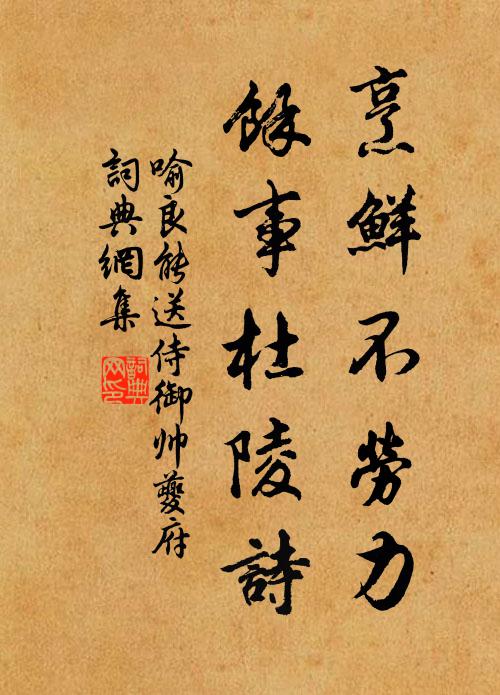 烹鮮不勞力
餘事杜陵詩
喻良能送侍御帅夔府
詞典網集
詞典
网印